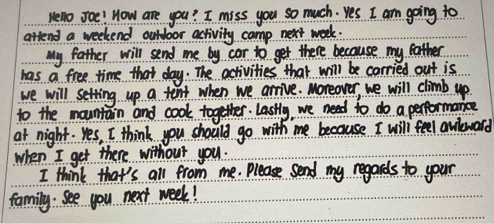 Hello Joe! How are you? I miss you so much. Yes I am going to
attend a weekend outdoor activity camp next week.
My father will send me by car to get there because my father
has a free time that day. The activities that will be carried out is
we will setting up a tent when we arrive. Moreover, we will climb up
to the mauntain and cook together. Lastly, we need to do a performance
at night. Yes, I think you should go with me because I will feel awkward
when I get there without you.
I think that's all from me. Please send my regards to your
family. See you next week!